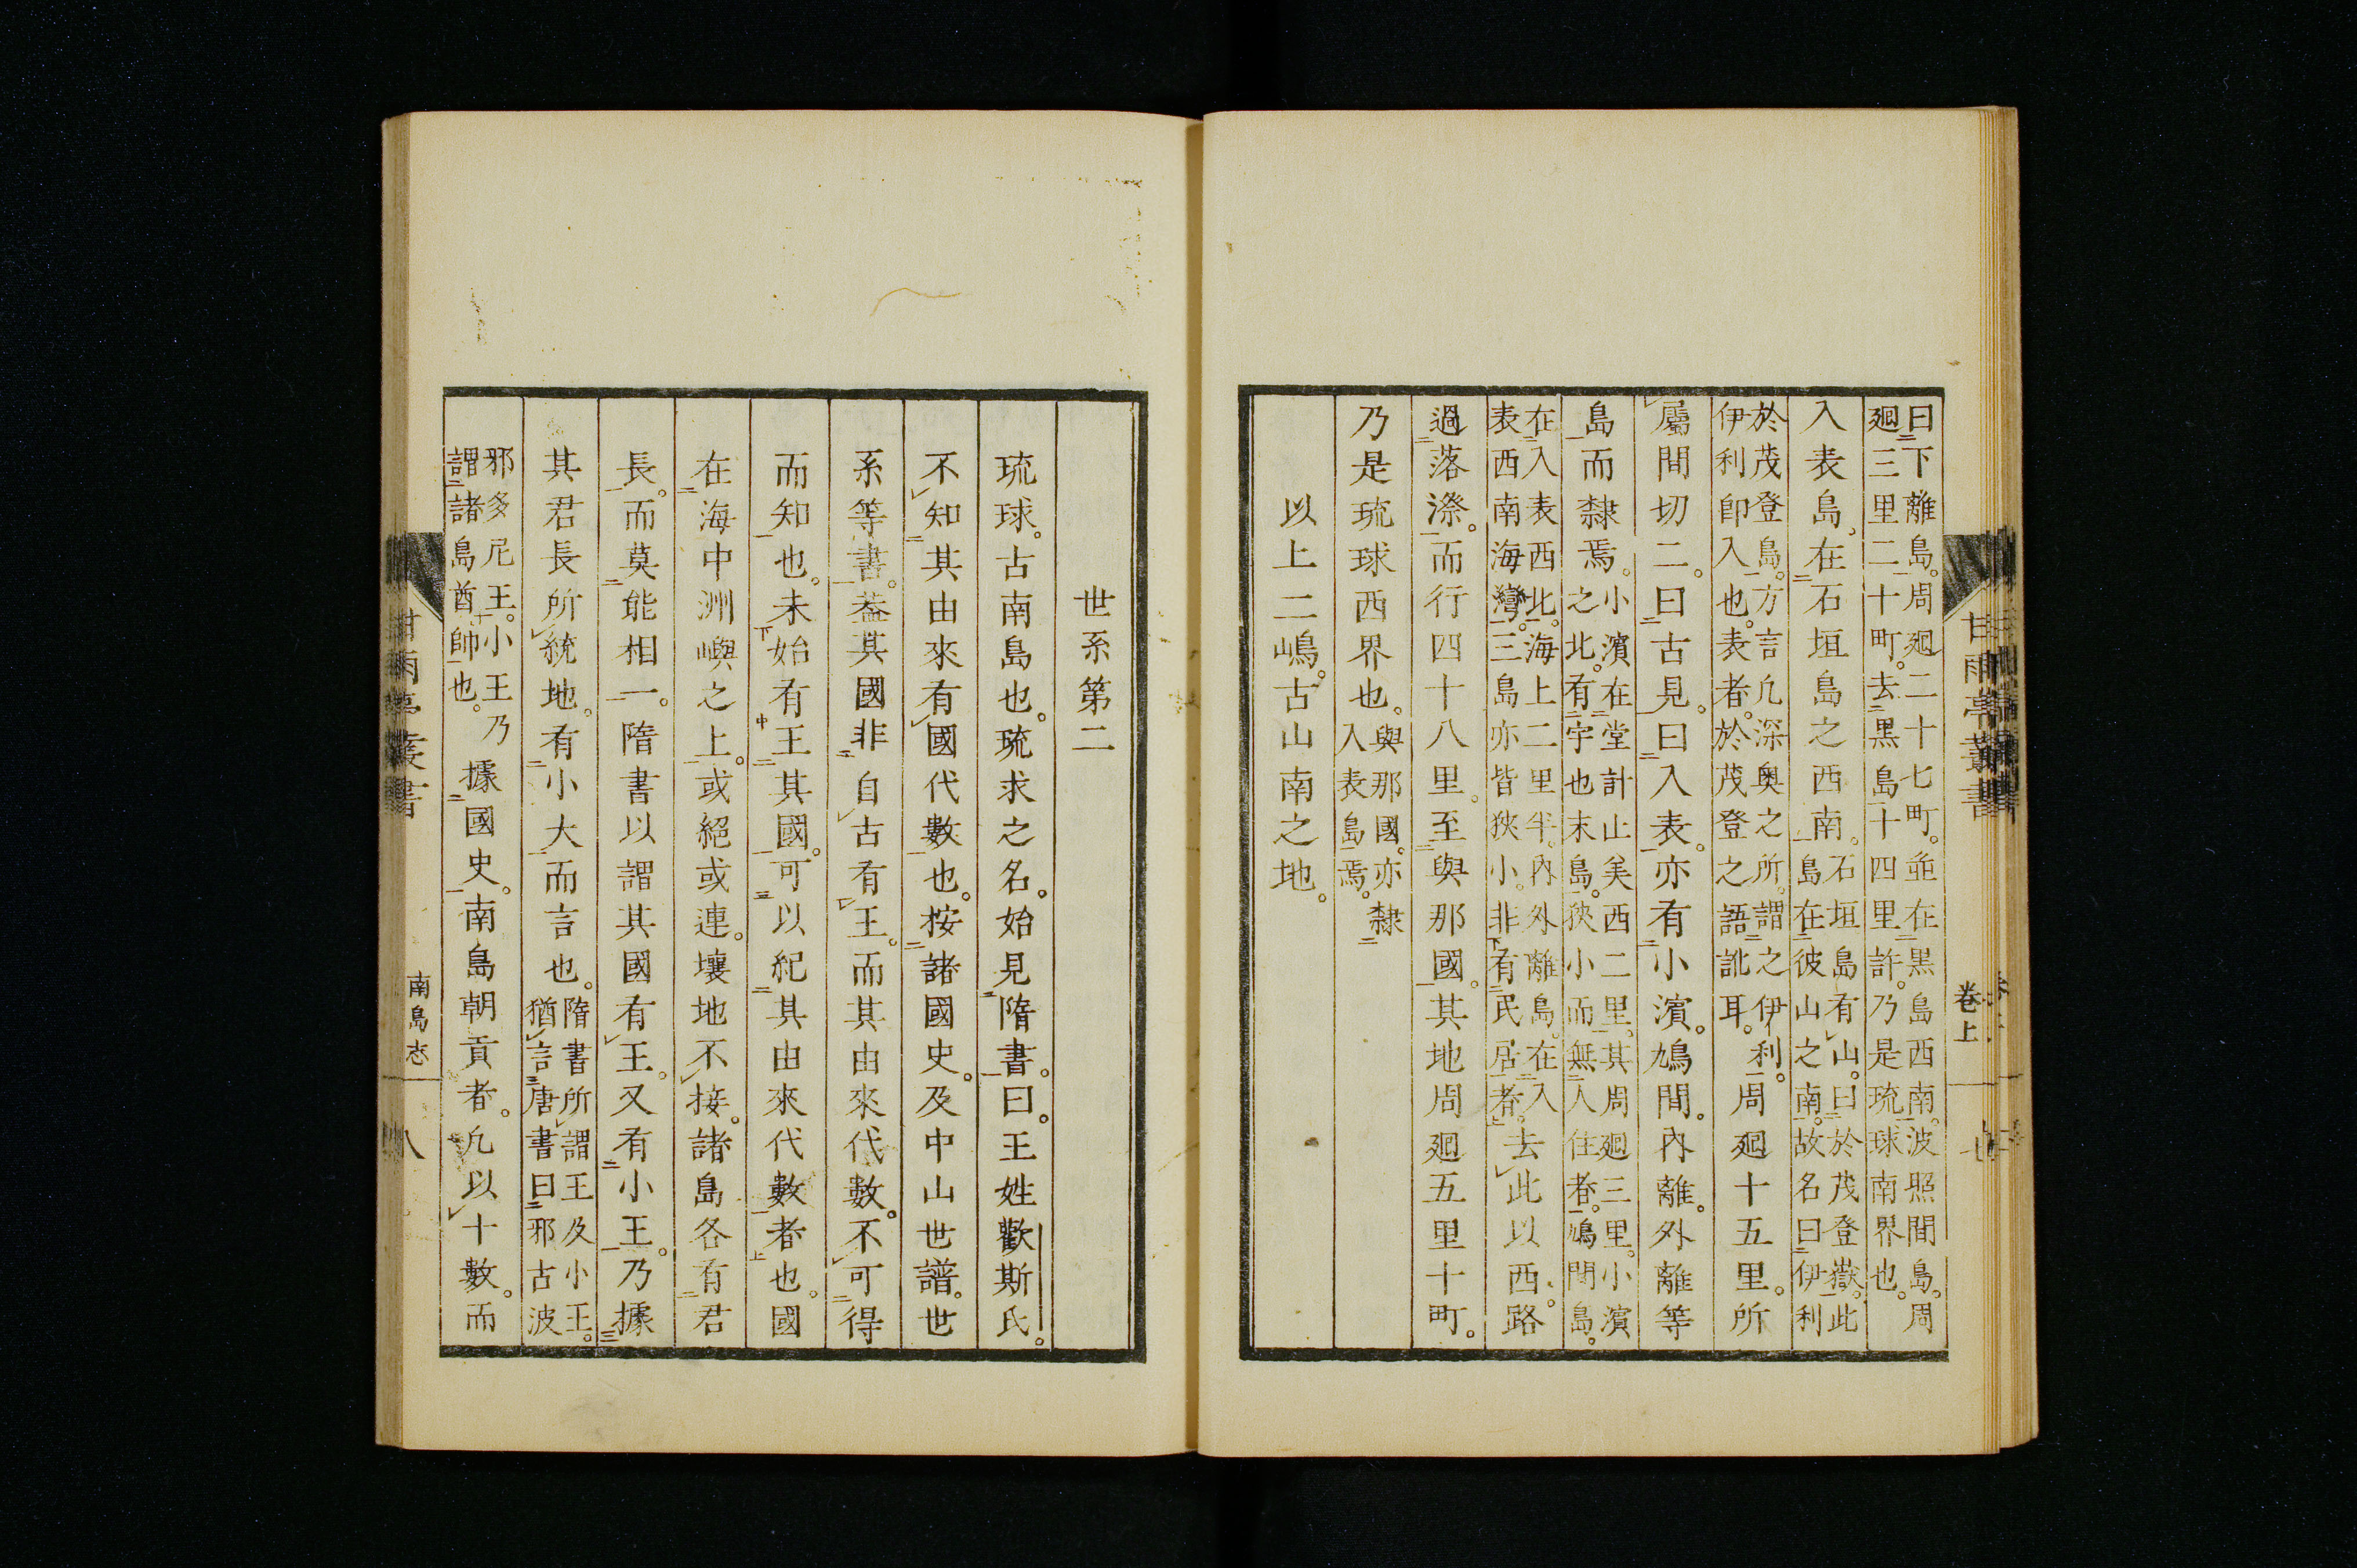 曰下離島。周廻二十七町。並在黒島西南。波照間島。周
廻三里二十町。去黒島十四里許。乃是琉球南界也。
入表島。在石垣島之西南。石垣島有山。曰於茂登嶽。此
島在彼山之南。故名曰伊利
於茂登島。方言凢深奥之所。謂之伊利。
伊利卽入也。表者。於茂登之語訛耳。周廻十五里。所
屬間切二。曰古見。曰入表。亦有小濱。鳩間。內離。外離等
島而隸焉。小濱在堂計止美西二里。其周廻三里。小濱
之北。有宇也末島。狹小而無人住者。鳩間島。
在入表西北。海上二里半。內外離島。在入
表西南海灣。三島亦皆狹小。非有民居者。去此以西。路
過落漈。而行四十八里。至與那國。其地周廻五里十町。
乃是琉球西界也。與那國。亦隸
入表島焉。
以上二嶋。古山南之地。
甘雨亭叢書
卷上
世系第二
琉球。古南島也。琉求之名。始見隋書。曰。王姓歡斯氏。
不知其由來有國代數也。按諸國史。及中山世譜。世
系等書。葢其國非自古有王。而其由來代數。不可得
而知也。未始有王其國。可以紀其由來代數者也。國
在海中洲嶼之上。或絕或連。壤地不接。諸島各有君
長。而莫能相一。隋書以謂其國有王。又有小王。乃據
其君長所統地。有小大而言也。隋書所謂王及小王。
猶言唐書曰邪古波
邪多尼王。小王乃
謂諸島酋帥也。據國史。南島朝貢者。凢以十數。而
甘雨亭叢書
南島志
八